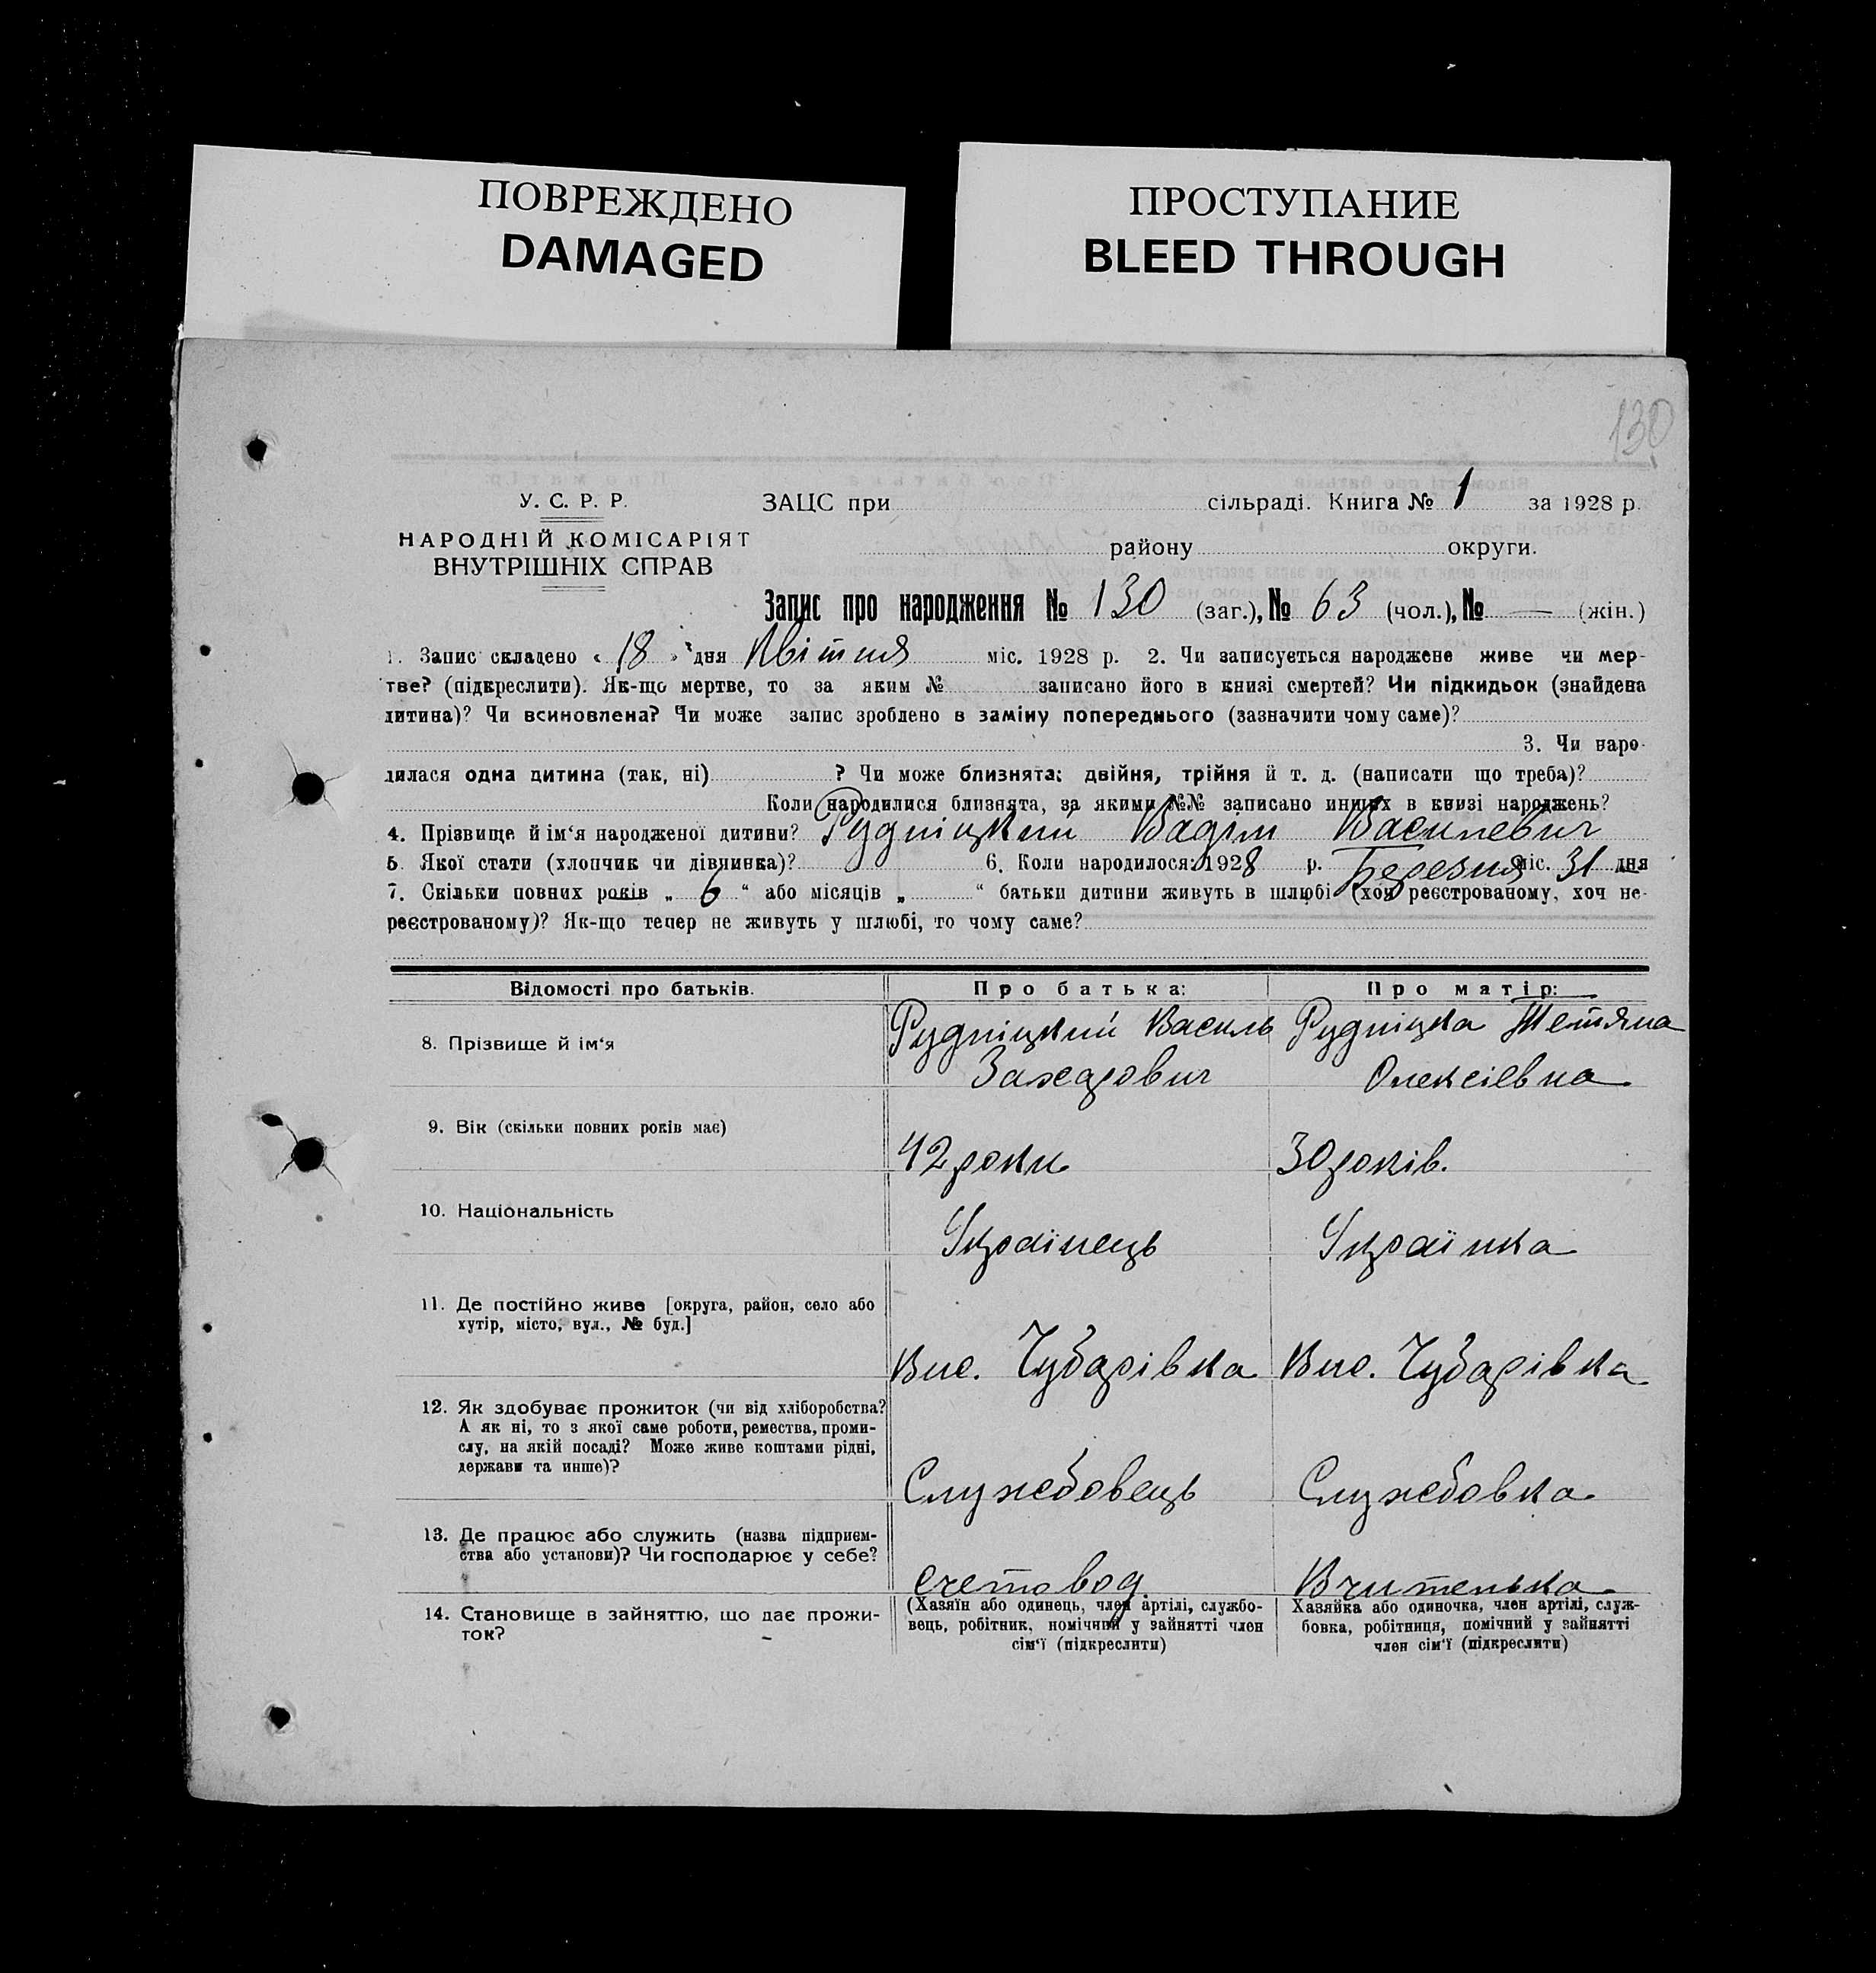 ПОВРЕЖДЕНО
DAMAGED
ПРОСТУПАНИЕ
BLEED THROUGH
130
У. С. Р. Р.
НАРОДНІЙ КОМІСАРІЯТ
ВНУТРІШНІХ СПРАВ
ЗАЦС при сільраді. Книга № 1 за 1928 р.
району округи.
Запис про народження № 130 (заг.), № 63 (чол.), № — (жін.)
1. Запис складено « 18 » дня Квітня міс. 1928 р. 2. Чи записується народжене живе чи мер-
тве? (підкреслити). Як-що мертве, то за яким № записано його в книзі смертей? Чи підкидьок (знайдена
дитина)? Чи всиновлена? Чи може запис зроблено в заміну попереднього (зазначити чому саме)?
3. Чи наро-
дилася одна дитина (так, ні) ? Чи може близнята: двійня, трійня й т. д. (написати що треба)?
Коли народилися близнята, за якими №№ записано инших в книзі народжень?
4. Прізвище й ім‘я народженої дитини? Рудніцкий Вадім Василевич
5. Якої стати (хлопчик чи дівчинка)? 6. Коли народилося: 1928 р. Березня міс. 31 дня
7. Скільки повних років „ 6 “ або місяців „ “ батьки дитини живуть в шлюбі (хоч реєстрованому, хоч не-
реєстрованому)? Як-що тепер не живуть у шлюбі, то чому саме?
Відомості про батьків. Про батька: Про матір:
8. Прізвище й ім‘я Рудніцкий Василь Рудніцка Тетяна
Захарович Олексіевна
9. Вік (скільки повних років має)
42 роки 30 років.
10. Національність
Українець Українка
11. Де постійно живе [округа, район, село або
хутір, місто, вул., № буд.]
Вис. Чубарівка Вис. Чубарівка
12. Як здобуває прожиток (чи від хліборобства?
А як ні, то з якої саме роботи, ремества, проми-
слу, на якій посаді? Може живе коштами рідні,
держави та инше)?
Службовець Службовка
13. Де працює або служить (назва підприєм-
ства або установи)? Чи господарює у себе?
счетовод Вчителька
14. Становище в зайняттю, що дає прожи-
ток?
(Хазяїн або одинець, член артілі, службо-
вець, робітник, помічний у зайнятті член
сім‘ї (підкреслити)
Хазяйка або одиночка, член артілі, служ-
бовка, робітниця, помічний у зайнятті
член сім‘ї (підкреслити)